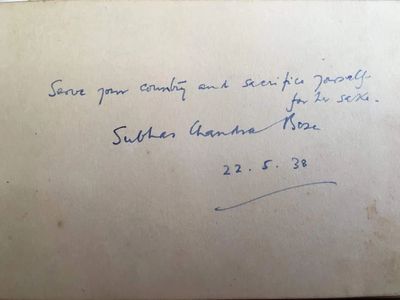 Serve your country and sacrifice yourself
for her sake.
Subhas Chandra Bose
22. 5. 38